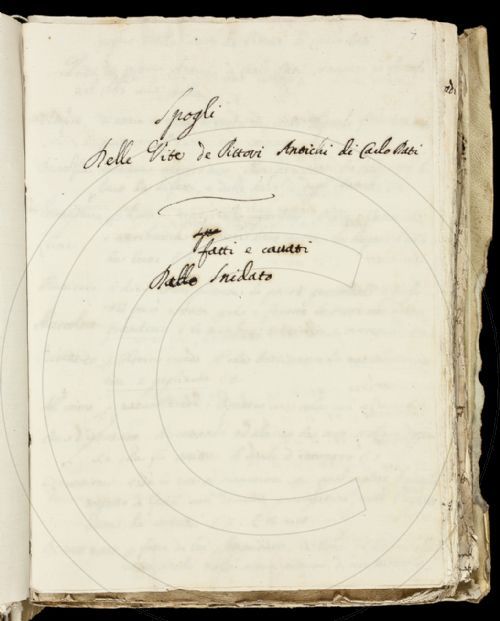 Spogli
Delle Vite de Pittori Antichi di Carlo Dati
fatti e cavati
Dallo Snidato